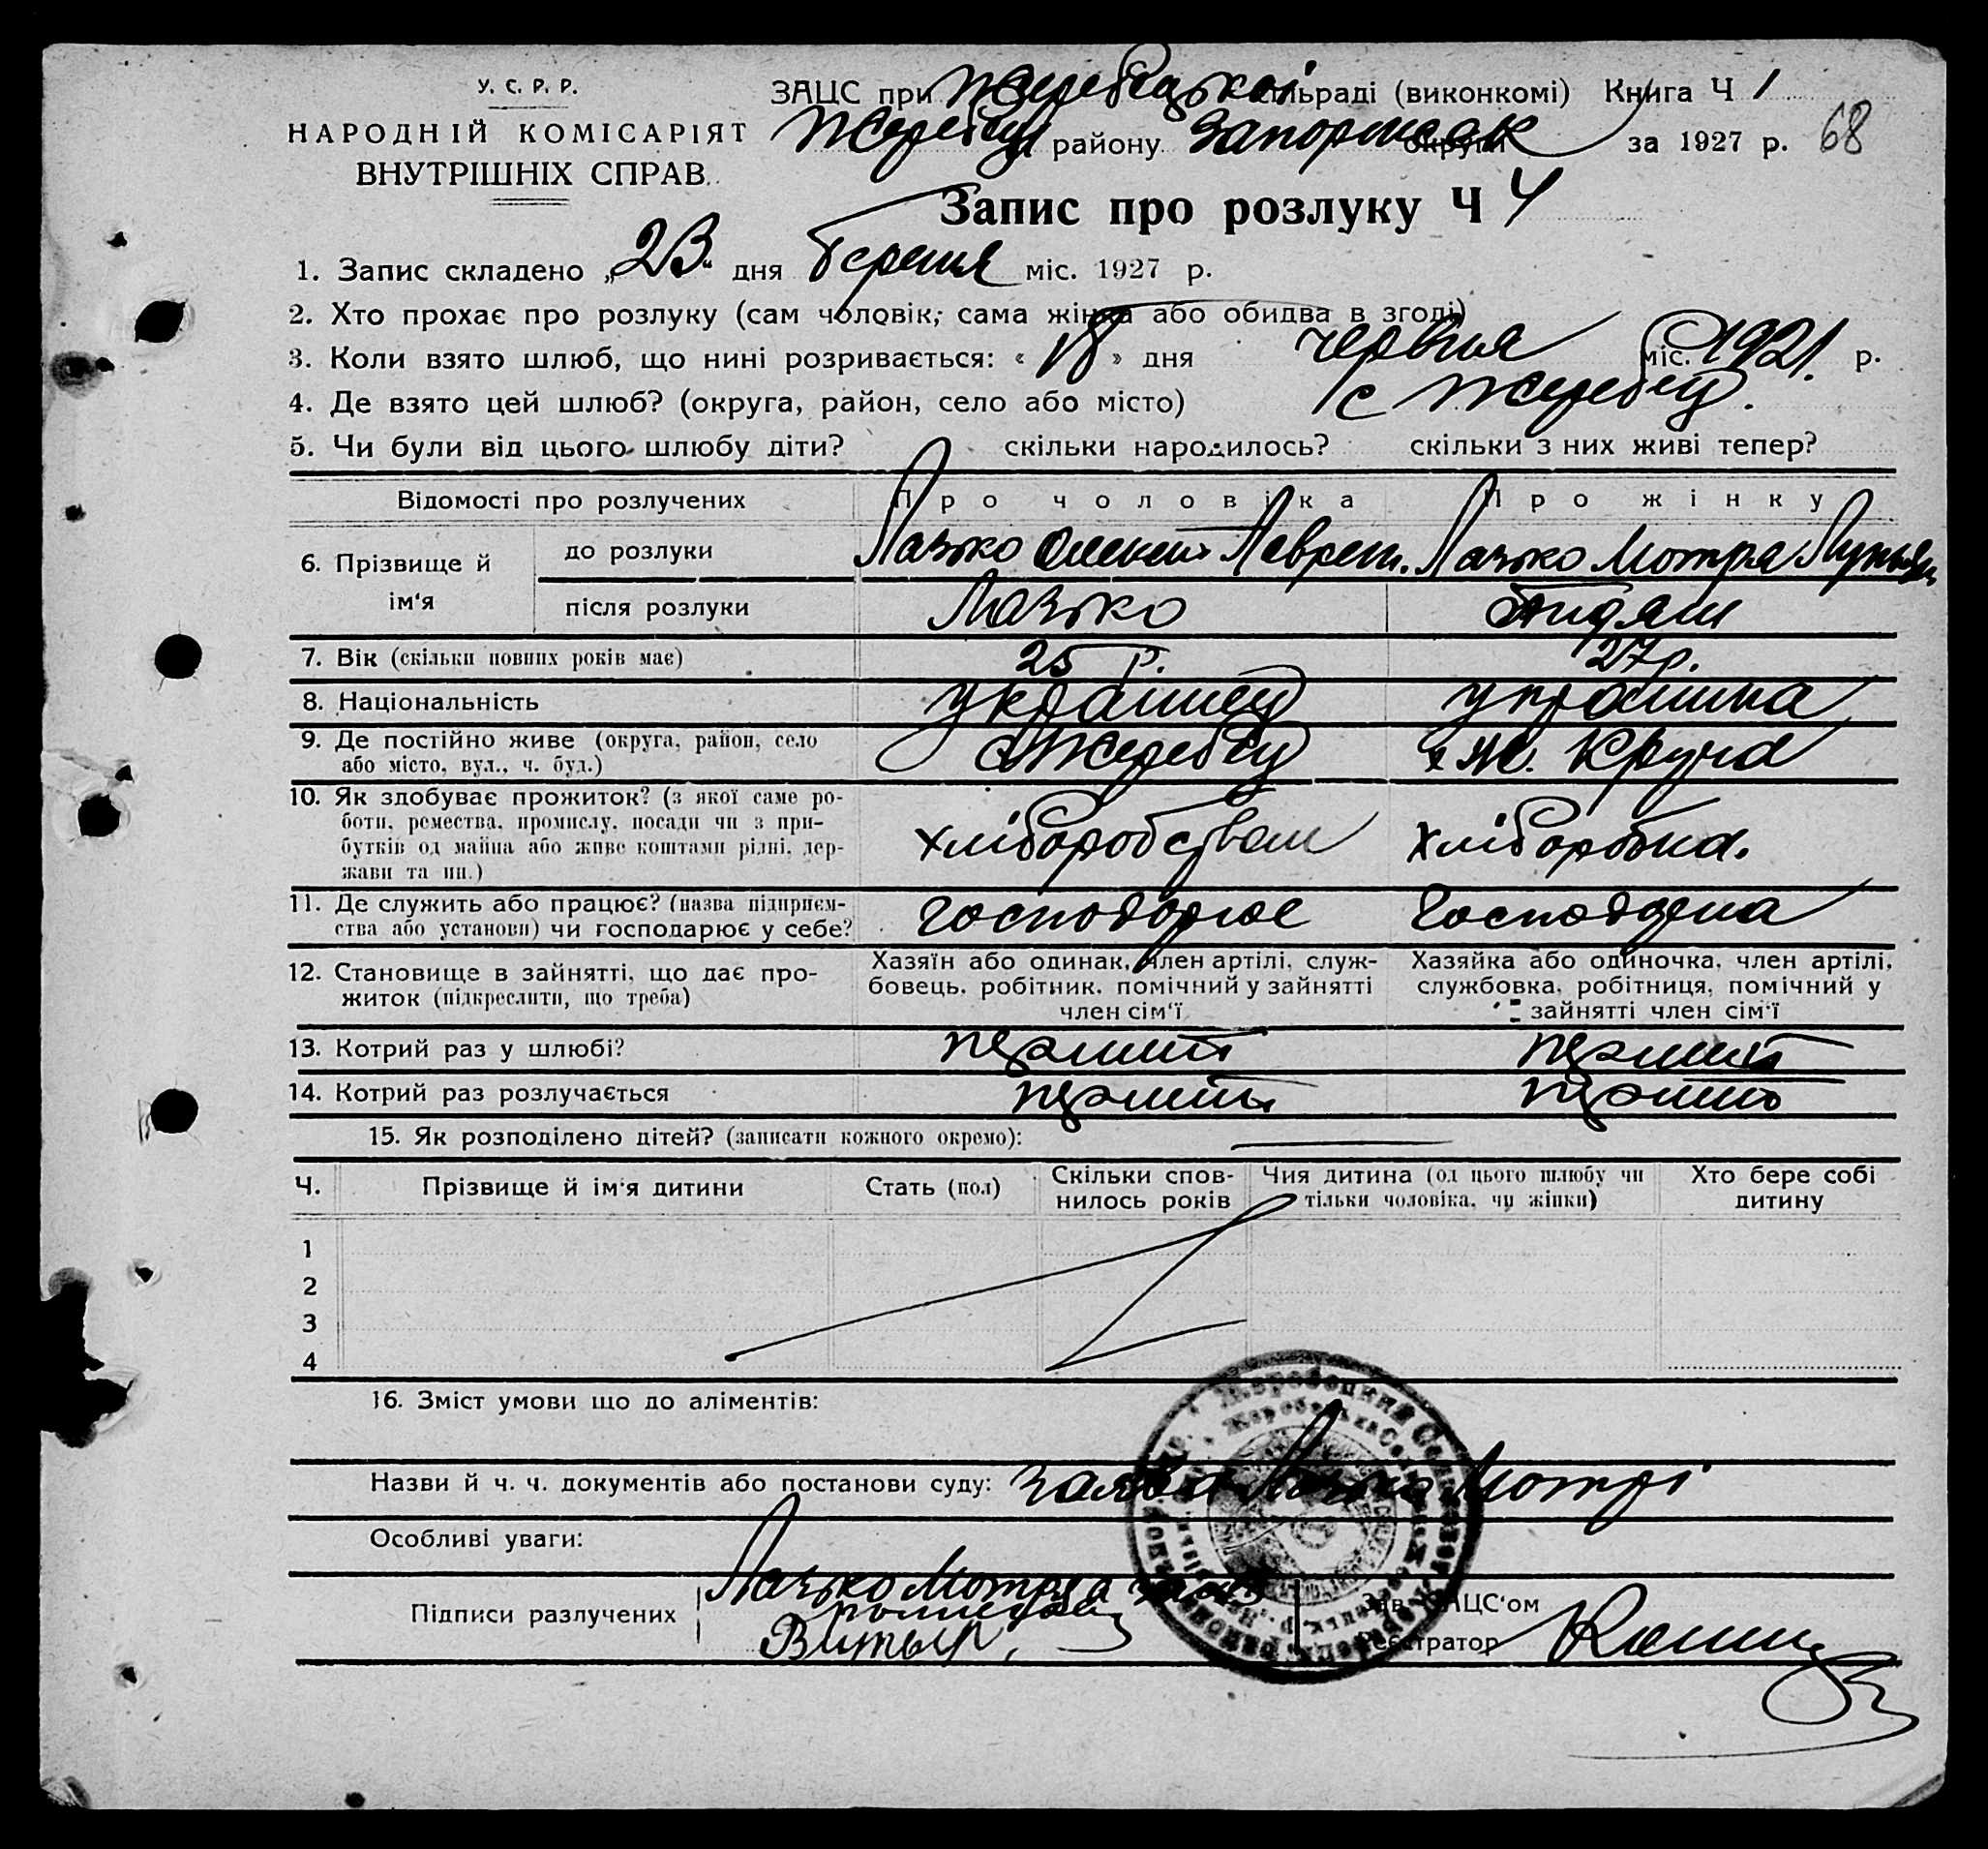 У. С. Р. Р.
НАРОДНІЙ КОМІСАРІЯТ
ВНУТРІШНІХ СПРАВ.
ЗАЦС при Жеребецькій сільраді (виконкомі) Книга Ч 1
Жеребец району Запорожськ округи за 1927 р. 68
Запис про розлуку Ч 4
1. Запис складено „23“ дня березня міс. 1927 р.
2. Хто прохає про розлуку (сам чоловік, сама жінка або обидва в згоді)
3. Коли взято шлюб, що нині розривається: « 18 » дня червня міс. 1921. р.
4. Де взято цей шлюб? (округа, район, село або місто) с Жеребец.
5. Чи були від цього шлюбу діти? скільки народилось? скільки з них живі тепер?
Відомості про розлучених Про чоловіка Про жінку
6. Прізвище й ім‘я до розлуки Лазько Олексій Аврам. Лазько Мотря
після розлуки Лазько
7. Вік (скільки повних років має) 25 р. 27 р.
8. Національність українец українка
9. Де постійно живе (округа, район, село
або місто, вул., ч. буд.) с Жеребец Круча
10. Як здобуває прожиток? (з якої саме ро-
боти, ремества, промислу, посади чи з при-
бутків од майна або живе коштами рідні, дер-
жави та ин.) хліборобством хліборобка.
11. Де служить або працює? (назва підприєм-
ства або установи) чи господарює у себе? господорює
12. Становище в зайнятті, що дає про-
житок (підкреслити, що треба)
Хазяїн або одинак, член артілі, служ-
бовець, робітник, помічний у зайнятті
член сім‘ї
Хазяйка або одиночка, член артілі,
службовка, робітниця, помічний у
зайнятті член сім‘ї
13. Котрий раз у шлюбі? перший перший
14. Котрий раз розлучається перший перший
15. Як розподілено дітей? (записати кожного окремо):
Ч. Прізвище й ім‘я дитини Стать (пол) Скільки спов-
нилось років Чия дитина (од цього шлюбу чи
тільки чоловіка, чи жінки) Хто бере собі
дитину
1
2
3
4
16. Зміст умови що до аліментів:
Назви й ч. ч. документів або постанови суду: заява Лазько Мотрі
Особливі уваги:
Підписи разлучених Лазько Мотря а за неї
Зав. ЗАЦС‘ом
Реєстратор